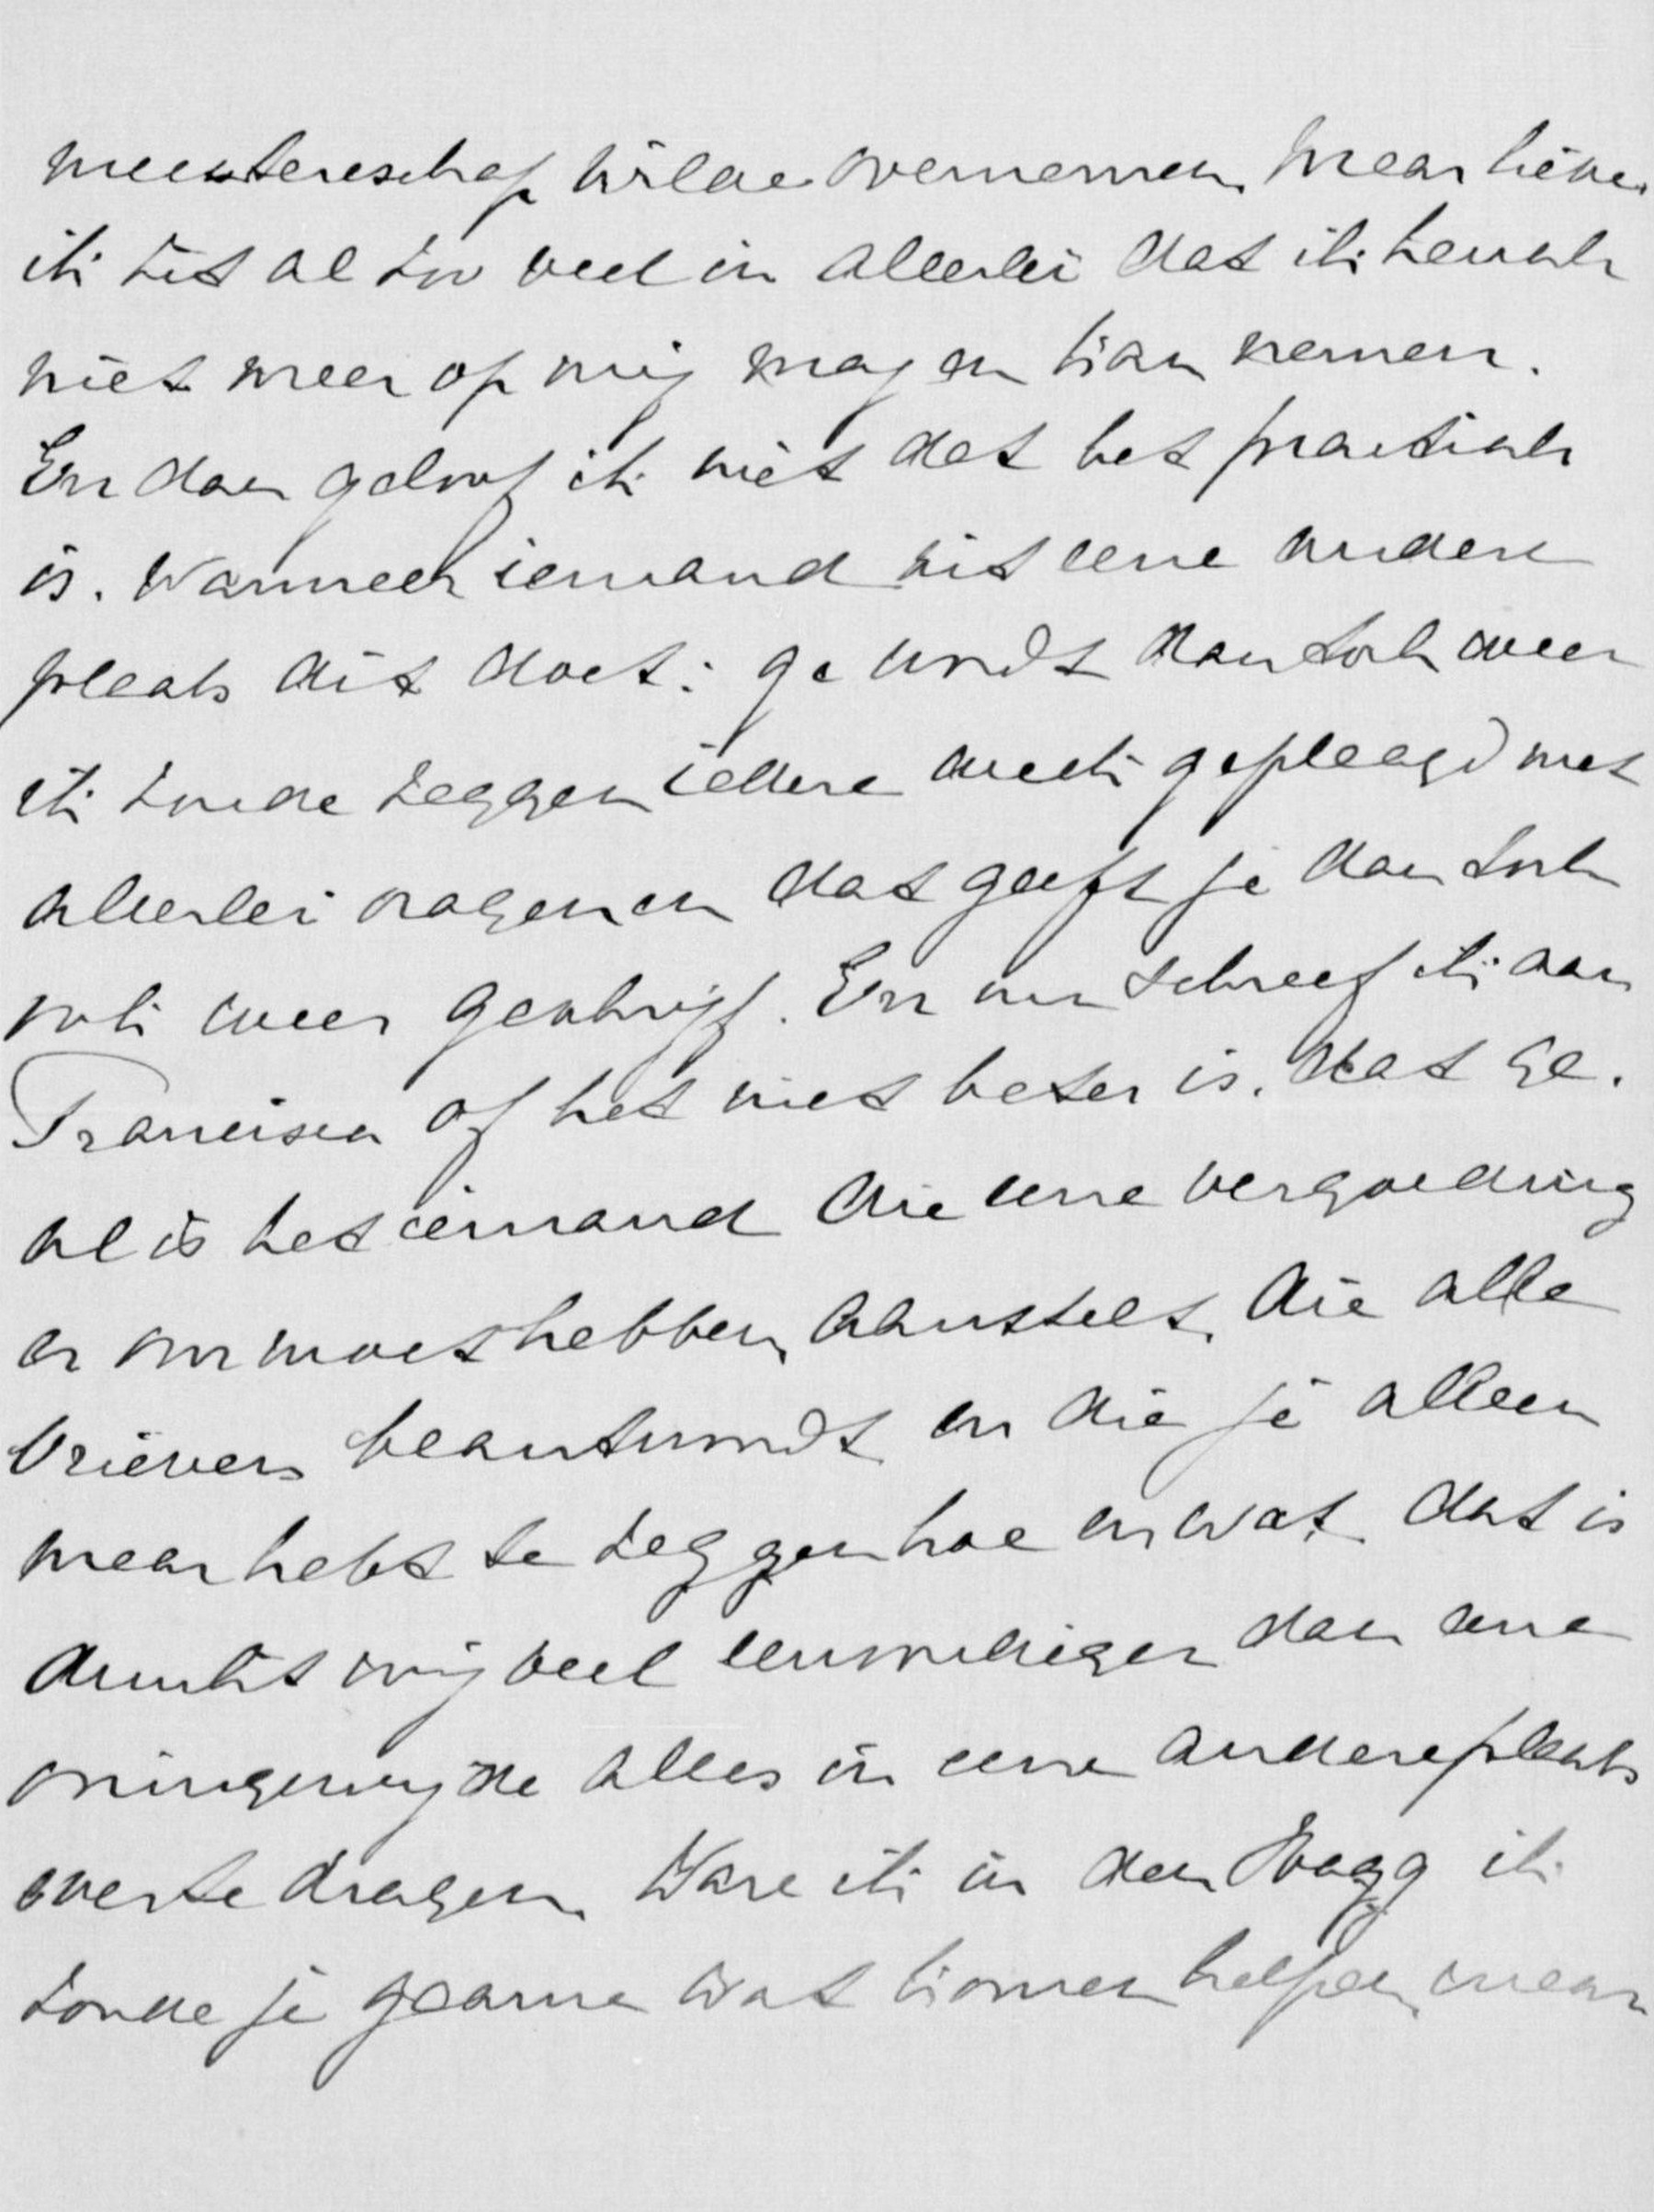 meesteresschap wilde overnemen. Maar lieve.
ik zit al zoo veel in allerlei dat ik heusch
niet meer op mij mag en kan nemen.
En dan geloof ik niet dat het practisch
is. Wanneer iemand uit eene andere
plaats dit doet: ge wordt dan toch weer
ik zoude zeggen iedere week geplaagd met
allerlei vragen en dat geeft je dan toch
ook weer geschrijf. En nu schreef ik aan
Francisca of het niet beter is. dat ge.
al is het iemand die eene vergoeding
er om moet hebben, aanstelt. die alle
brieven beantwordt en die je alleen
maar hebt te zeggen hoe en wat. dat is
dunkt mij veel eenvoudiger dan eene
oningewijde alles in eene andere plaats
over te dragen. Ware ik in den Haag ik
zoude je gaarne wat komen helpen, maar